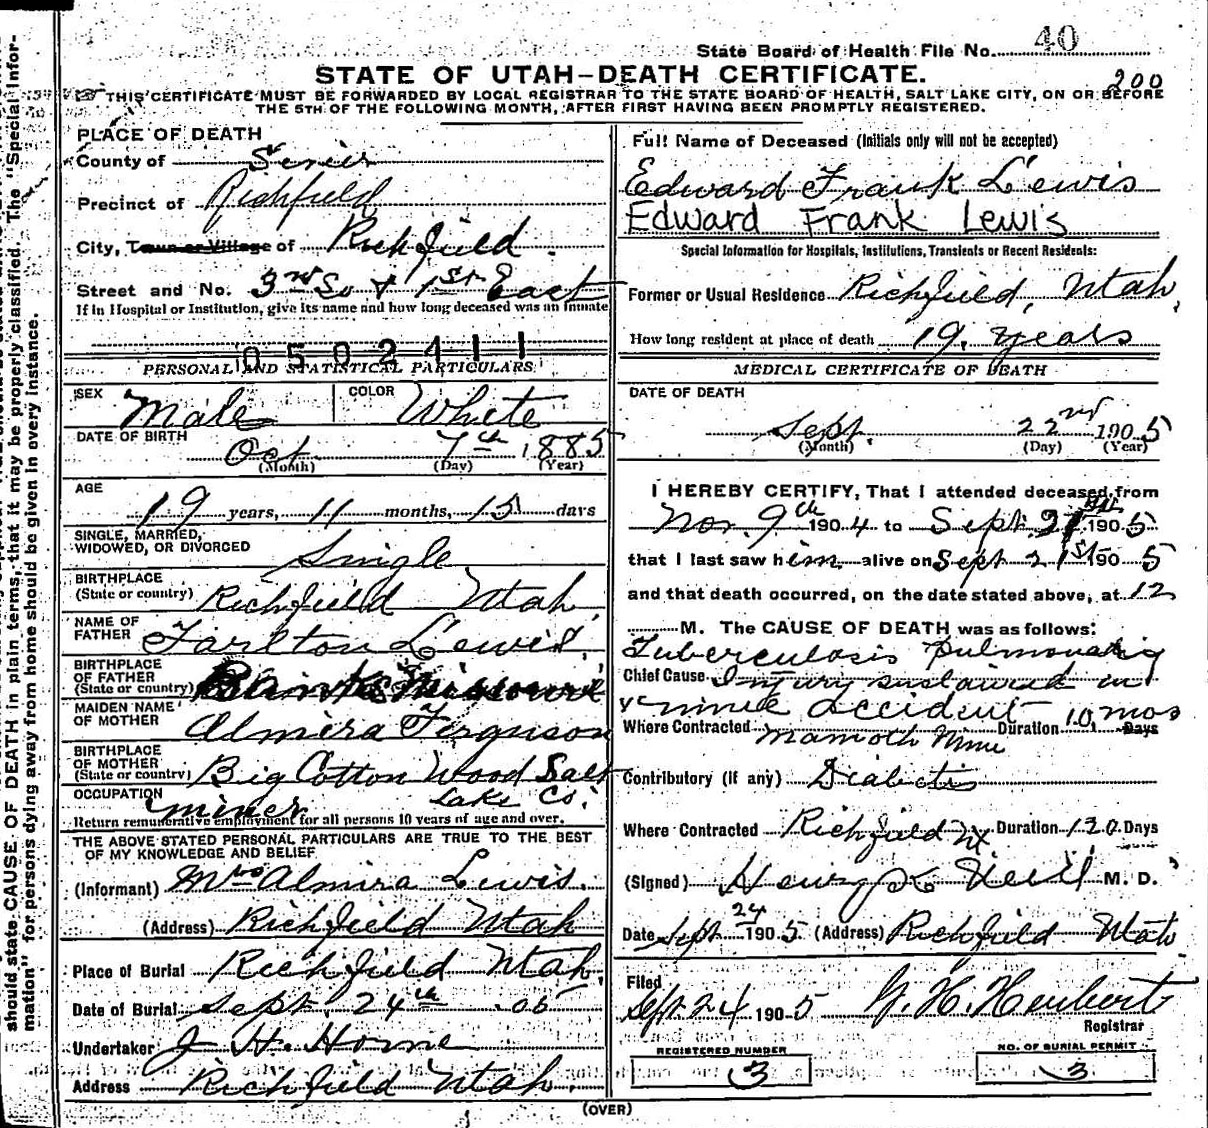 State Board of Health File No. 40
STATE OF UTAH-DEATH CERTIFICATE.
200
THIS CERTIFICATE MUST BE FORWARDED BY LOCAL REGISTRAR TO THE STATE BOARD OF HEALTH, SALT LAKE CITY, ON OR BEFORE
THE 5TH OF THE FOLLOWING MONTH, AFTER FIRST HAVING BEEN PROMPTLY REGISTERED.
PLACE OF DEATH
County of Sevier
Precinct of Richfield
City, Town or Village of Richfield.
Street and No. 3rd So & 1st East
If in Hospital or Institution, give its name and how long deceased was an inmate
0502411
PERSONAL AND STATISTICAL PARTICULARS
SEX Male COLOR White
DATE OF BIRTH
Oct 7th 1885
(Month) (Day) (Year)
AGE
19 years, 11 months, 15 days
SINGLE, MARRIED,
WIDOWED, OR DIVORCED Single
BIRTHPLACE
(State or country) Richfield Utah
NAME OF
FATHER Tarlton Lewis.
BIRTHPLACE
OF FATHER
(State or country) Missouri
MAIDEN NAME
OF MOTHER Almira Ferguson
BIRTHPLACE
OF MOTHER
(State or country) Big Cotton Wood Salt
Lake Co.
OCCUPATION
miner
Return remunerative employment for all persons 10 years of age and over.
THE ABOVE STATED PERSONAL PARTICULARS ARE TRUE TO THE BEST
OF MY KNOWLEDGE AND BELIEF
(Informant) Mrs Almira Lewis.
(Address) Richfield Utah
Place of Burial Richfield Utah.
Date of Burial Sept. 24th 05
Undertaker J H. Horne
Address Richfield Utah.
Full Name of Deceased (Initials only will not be accepted)
Edward Frank Lewis
Edward Frank Lewis
Special Information for Hospitals, Institutions, Transients or Recent Residents:
Former or Usual Residence Richfield, Utah,
How long resident at place of death 19. years
MEDICAL CERTIFICATE OF DEATH
DATE OF DEATH
Sept. 22nd 1905
(Month) (Day) (Year)
I HEREBY CERTIFY, That I attended deceased from
Nov. 9th 1904 to Sept. 21 1905
that I last saw him alive on Sept 21st 1905
and that death occurred, on the date stated above, at 12
M. The CAUSE OF DEATH was as follows:
Tuberculosis Pulmonary
Chief Cause Injury sustained in
mine accident
Where Contracted Mamoth Mine Duration 10 mos Days
Contributory (if any) Diabetis
Where Contracted Richfield Ut Duration 130 Days
(Signed) Henry K Neill M. D.
Date Sept 24 1905 (Address) Richfield Utah
Filed
Sept 24 1905 G. H. Heubert
Registrar
REGISTERED NUMBER
3
NO. OF BURIAL PERMIT
3
(OVER)
should state CAUSE OF DEATH in plain terms, that it may be properly classified. The "Special Infor-
mation" for persons dying away from home should be given in every instance.